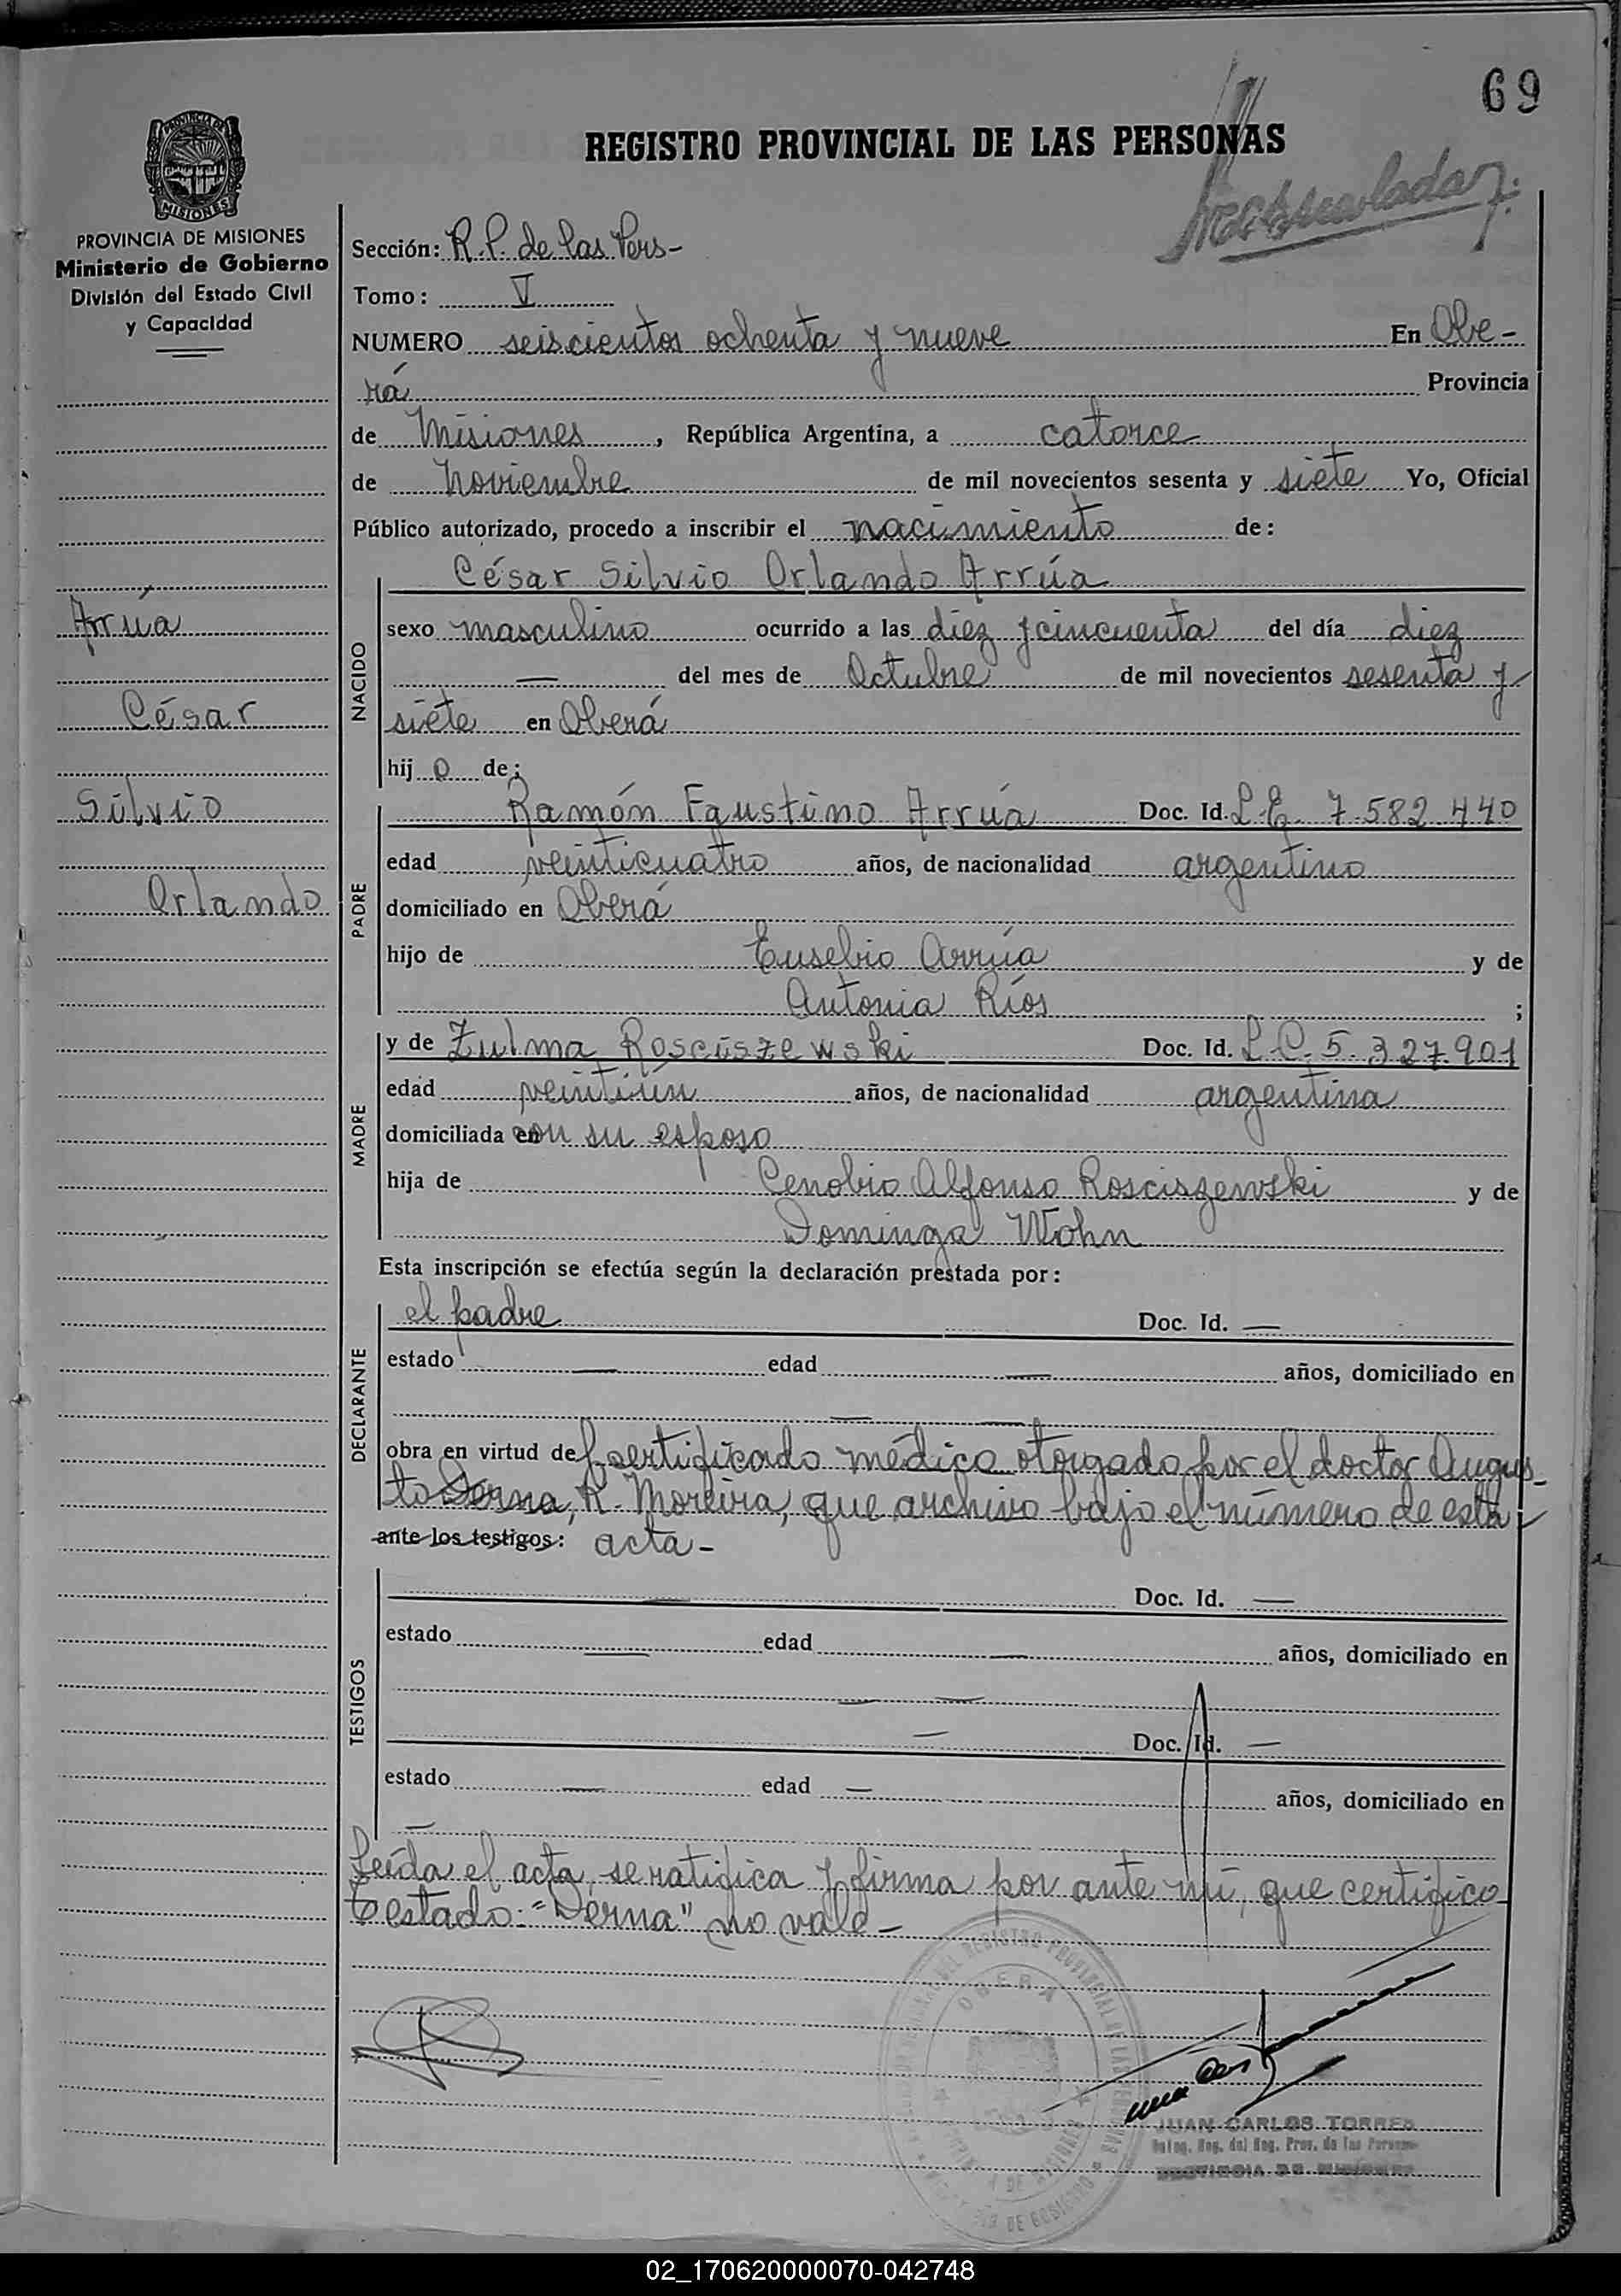 69
REGISTRO PROVINCIAL DE LAS PERSONAS
Matriculado
PROVINCIA DE MISIONES
Ministerio de Gobierno
División del Estado Civil
y Capacidad
Sección: R.P. de las Pers-
Tomo: V
NUMERO seiscientos ochenta y nueve En Obe-
rá Provincia
de Misiones, República Argentina, a catorce
de Noviembre de mil novecientos sesenta y siete Yo, Oficial
Público autorizado, procedo a inscribir el nacimiento de:
César Silvio Orlando Arrúa
Arrúa
César
Silvio
Orlando
NACIDO
sexo masculino ocurrido a las diez y cincuenta del día diez
— del mes de Octubre de mil novecientos sesenta y
siete en Oberá
hij o de:
PADRE
Ramón Faustino Arrúa Doc. Id. L.E. 7.582.440
edad veinticuatro años, de nacionalidad argentino
domiciliado en Oberá
hijo de Eusebio Arrúa y de
Antonia Ríos ;
MADRE
y de Zulma Rosciszewski Doc. Id. L.C. 5.327.901
edad veintiún años, de nacionalidad argentina
domiciliada en con su esposo
hija de Cenobio Alfonso Rosciszewski y de
Dominga Wohn
Esta inscripción se efectúa según la declaración prestada por:
DECLARANTE
el padre Doc. Id. —
estado — edad — años, domiciliado en
— —
obra en virtud de certificado médico otorgado por el doctor Augus-
to Serna, R. Moreira, que archivo bajo el número de esta
ante los testigos: acta-
TESTIGOS
— Doc. Id. —
estado — edad — años, domiciliado en
— —
— Doc. Id. —
estado — edad — años, domiciliado en
—
Leída el acta, se ratifica y firma por ante mí, que certifico-
testado: "Serna" no vale-
OBERA
JUAN CARLOS TORRES
Reg. del Reg. Prov. de las Personas
PROVINCIA DE MISIONES
02_170620000070-042748